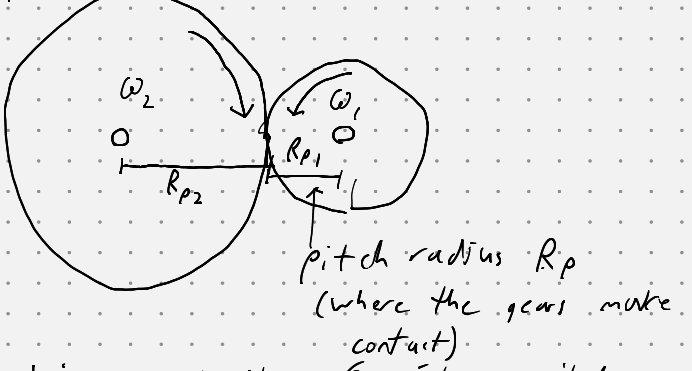 ω₂
ω₁
Rp₁
Rp₂
pitch radius Rp
(where the gears make
contact)